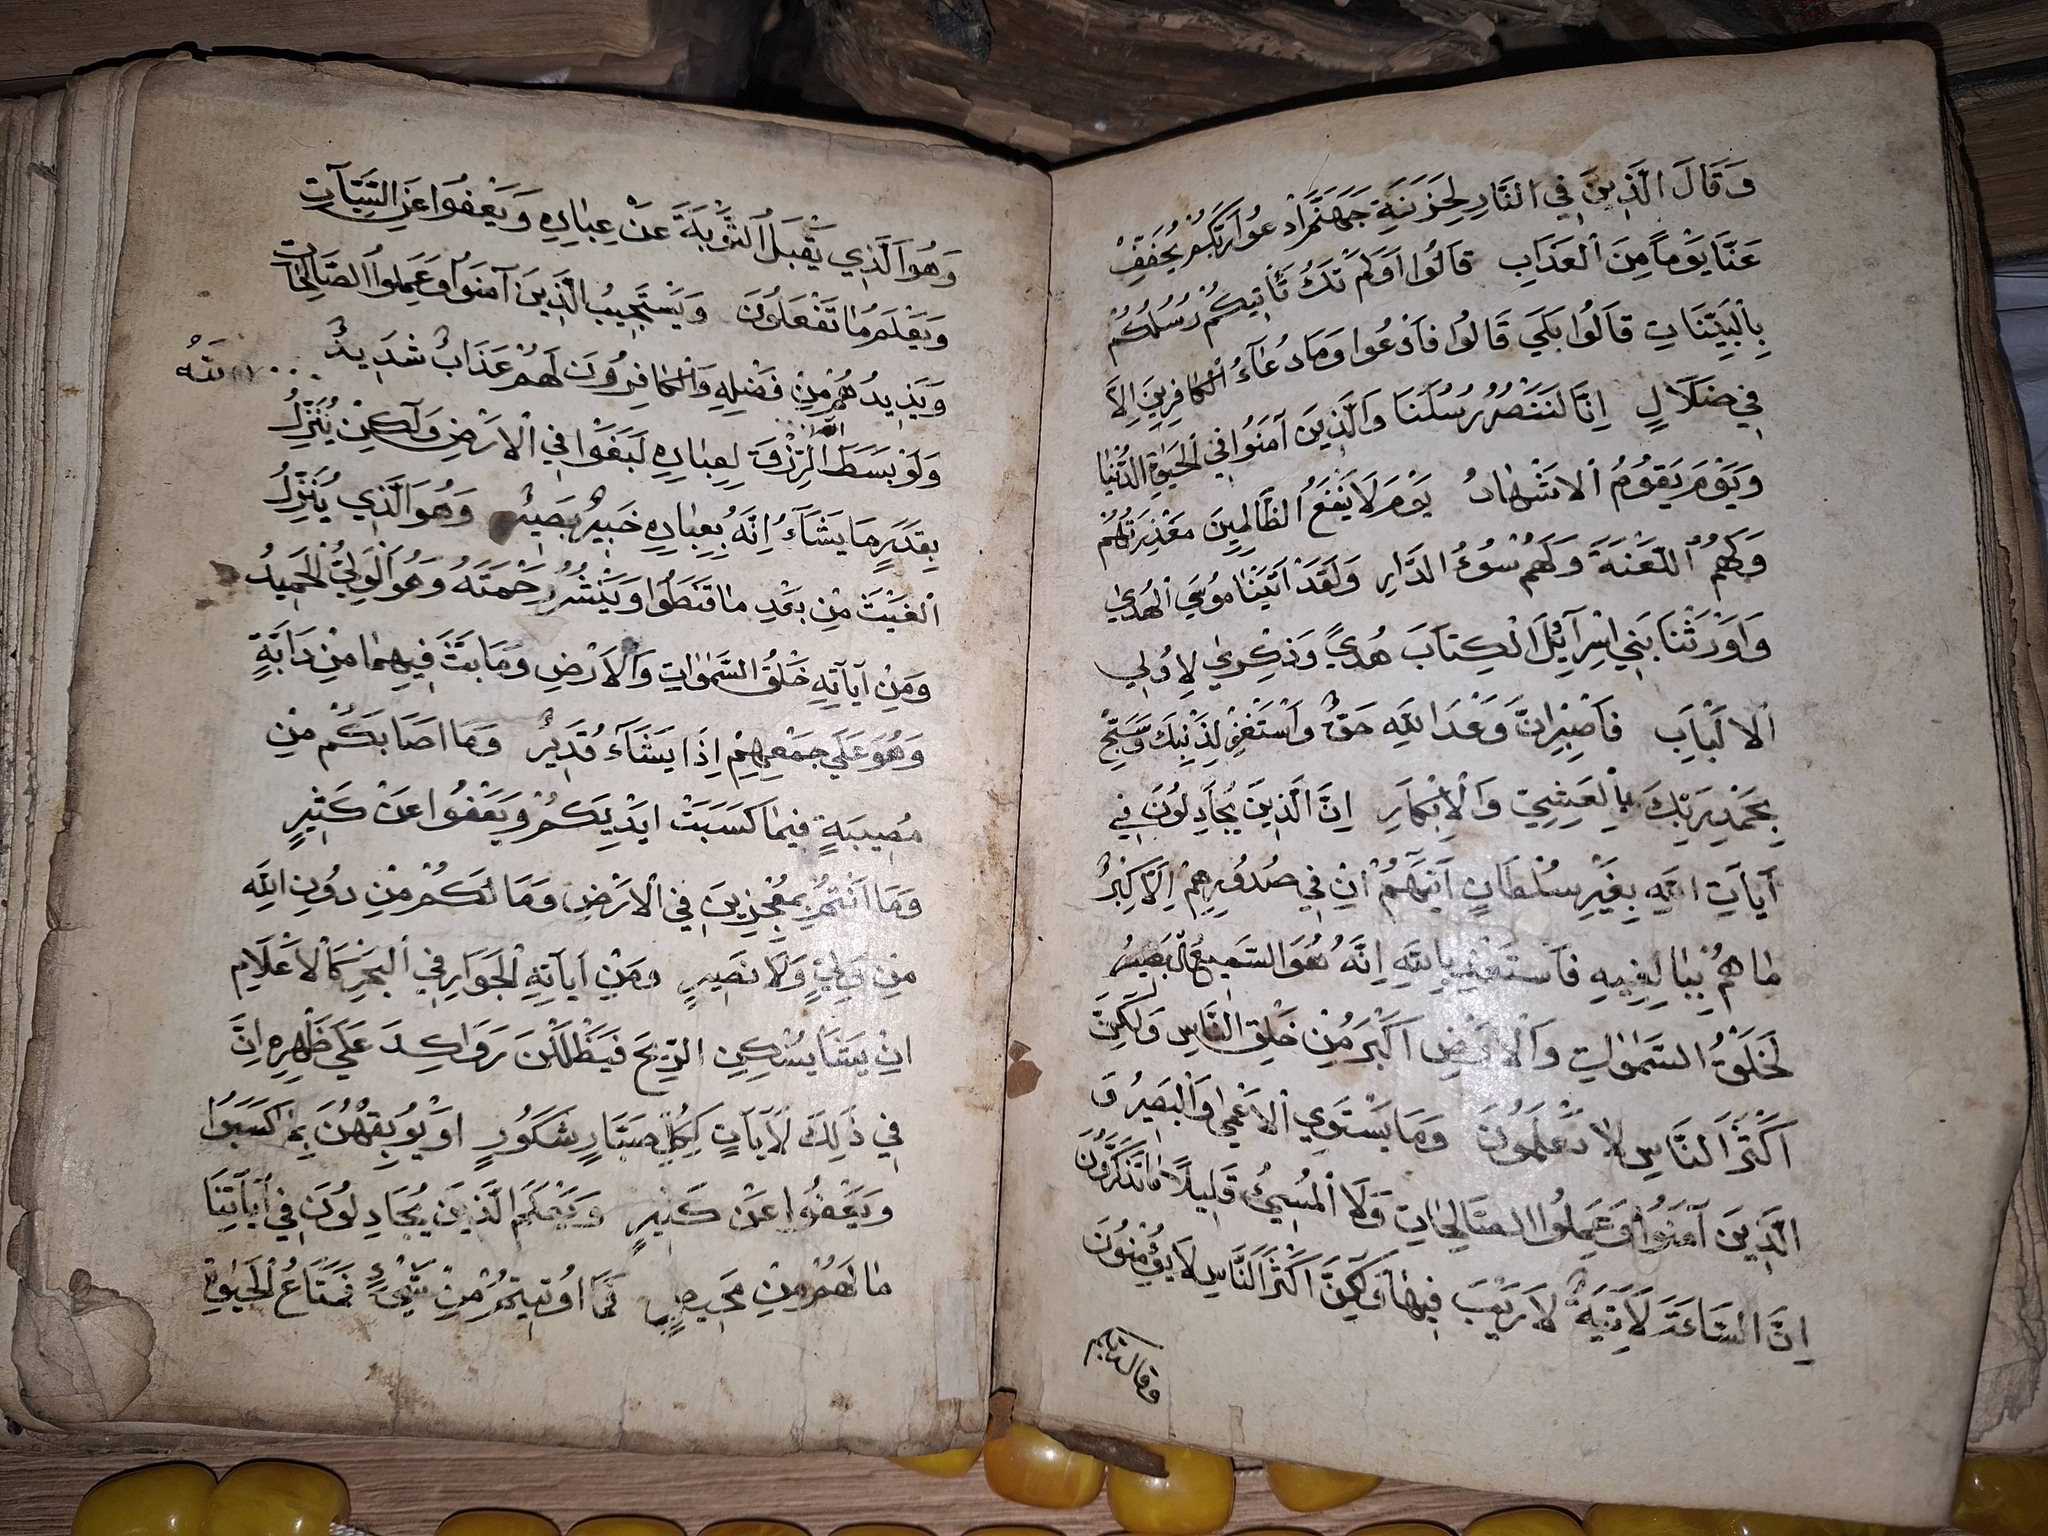 وَقَالَ الَّذِينَ فِي النَّارِ لِخَزَنَةِ جَهَنَّمَ ادْعُوا رَبَّكُمْ يُخَفِّفْ
عَنَّا يَوْمًا مِنَ الْعَذَابِ قَالُوا اَوَلَمْ تَكُ تَأْتِيكُمْ رُسُلُكُمْ
بِالْبَيِّنَاتِ قَالُوا بَلَي قَالُوا فَادْعُوا وَمَا دُعَآءُ الْكَافِرِينَ اِلَّا
فِي ضَلَالٍ اِنَّا لَنَنْصُرُ رُسُلَنَا وَالَّذِينَ آمَنُوا فِي الْحَيٰوةِ الدُّنْيَا
وَيَوْمَ يَقُومُ الْاَشْهَادُ يَوْمَ لَا يَنْفَعُ الظَّالِمِينَ مَعْذِرَتُهُمْ
وَلَهُمُ اللَّعْنَةُ وَلَهُمْ سُوءُ الدَّارِ وَلَقَدْ اٰتَيْنَا مُوسَي الْهُدٰي
وَاَوْرَثْنَا بَنِي اِسْرَآئِلَ الْكِتَابَ هُدًي وَذِكْرٰي لِاُولِي
الْاَلْبَابِ فَاصْبِرْ اِنَّ وَعْدَ اللّٰهِ حَقٌّ وَاسْتَغْفِرْ لِذَنْبِكَ وَسَبِّحْ
بِحَمْدِ رَبِّكَ بِالْعَشِيِّ وَالْاِبْكَارِ اِنَّ الَّذِينَ يُجَادِلُونَ فِي
آيَاتِ اللّٰهِ بِغَيْرِ سُلْطَانٍ اَتٰيهُمْ اِنْ فِي صُدُورِهِمْ اِلَّا كِبْرٌ
مَا هُمْ بِبَالِغِيهِ فَاسْتَعِذْ بِاللّٰهِ اِنَّهُ هُوَ السَّمِيعُ الْبَصِيرُ
لَخَلْقُ السَّمٰوَاتِ وَالْاَرْضِ اَكْبَرُ مِنْ خَلْقِ النَّاسِ وَلٰكِنَّ
اَكْثَرَ النَّاسِ لَا يَعْلَمُونَ وَمَا يَسْتَوِي الْاَعْمٰي وَالْبَصِيرُ وَ
الَّذِينَ آمَنُوا وَعَمِلُوا الصَّالِحَاتِ وَلَا الْمُسِيءُ قَلِيلًا مَا تَتَذَكَّرُونَ
اِنَّ السَّاعَةَ لَآتِيَةٌ لَا رَيْبَ فِيهَا وَلٰكِنَّ اَكْثَرَ النَّاسِ لَا يُؤْمِنُونَ
وقال ربكم
وَهُوَ الَّذِي يَقْبَلُ التَّوْبَةَ عَنْ عِبَادِهِ وَيَعْفُوا عَنِ السَّيِّآتِ
وَيَعْلَمُ مَا تَفْعَلُونَ وَيَسْتَجِيبُ الَّذِينَ آمَنُوا وَعَمِلُوا الصَّالِحَاتِ
وَيَزِيدُهُمْ مِنْ فَضْلِهِ وَالْكَافِرُونَ لَهُمْ عَذَابٌ شَدِيدٌ
وَلَوْ بَسَطَ اللّٰهُ الرِّزْقَ لِعِبَادِهِ لَبَغَوْا فِي الْاَرْضِ وَلٰكِنْ يُنَزِّلُ
بِقَدَرٍ مَا يَشَآءُ اِنَّهُ بِعِبَادِهِ خَبِيرٌ بَصِيرٌ وَهُوَ الَّذِي يُنَزِّلُ
الْغَيْثَ مِنْ بَعْدِ مَا قَنَطُوا وَيَنْشُرُ رَحْمَتَهُ وَهُوَ الْوَلِيُّ الْحَمِيدُ
وَمِنْ آيَاتِهِ خَلْقُ السَّمٰوَاتِ وَالْاَرْضِ وَمَا بَثَّ فِيهِمَا مِنْ دَابَّةٍ
وَهُوَ عَلَي جَمْعِهِمْ اِذَا يَشَآءُ قَدِيرٌ وَمَا اَصَابَكُمْ مِنْ
مُصِيبَةٍ فَبِمَا كَسَبَتْ اَيْدِيكُمْ وَيَعْفُوا عَنْ كَثِيرٍ
وَمَا اَنْتُمْ بِمُعْجِزِينَ فِي الْاَرْضِ وَمَا لَكُمْ مِنْ دُونِ اللّٰهِ
مِنْ وَلِيٍّ وَلَا نَصِيرٍ وَمِنْ آيَاتِهِ الْجَوَارِ فِي الْبَحْرِ كَالْاَعْلَامِ
اِنْ يَشَأْ يُسْكِنِ الرِّيحَ فَيَظْلَلْنَ رَوَاكِدَ عَلَي ظَهْرِهِ اِنَّ
فِي ذٰلِكَ لَآيَاتٍ لِكُلِّ صَبَّارٍ شَكُورٍ اَوْ يُوبِقْهُنَّ بِمَا كَسَبُوا
وَيَعْفُوا عَنْ كَثِيرٍ وَيَعْلَمَ الَّذِينَ يُجَادِلُونَ فِي آيَاتِنَا
مَا لَهُمْ مِنْ مَحِيصٍ فَمَا اُوتِيتُمْ مِنْ شَيْءٍ فَمَتَاعُ الْحَيٰوةِ